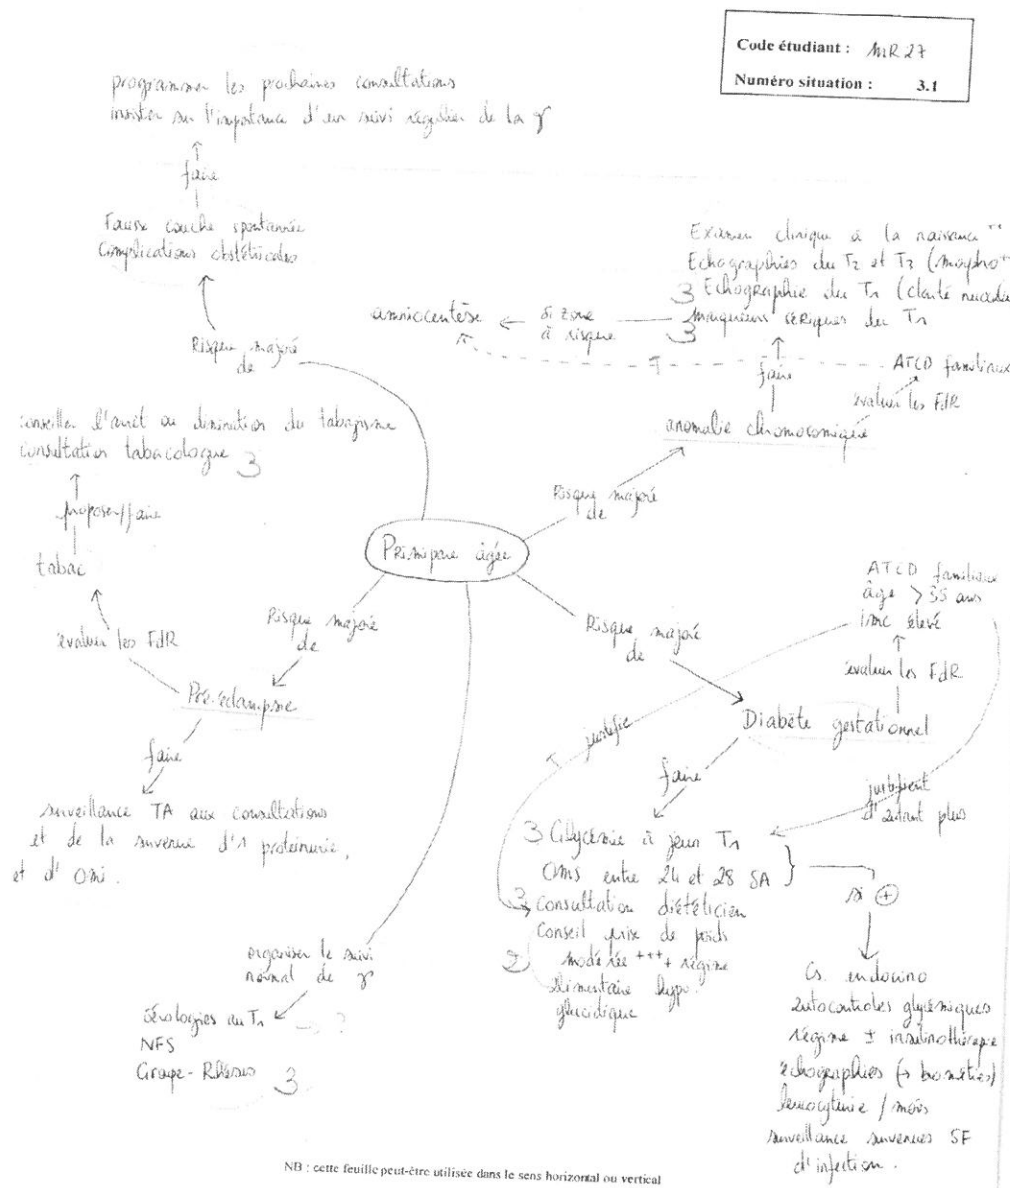 Code étudiant : MR 27
Numéro situation : 3.1
programmer les prochaines consultations
insister sur l'importance d'un suivi régulier de la γ
faire
Fausse couche spontannée
Complications obstétricales
Risque majoré
de
Examen clinique à la naissance ++
Echographies du T2 et T3 (morpho+
3 Echographie du T1 (clarté nucale
3 marqueurs sériques du T1
amniocentèse
si zone
à risque
T
faire
ATCD familiaux
évaluer les FdR
anomalie chromosomique
Risque majoré
de
conseiller l'arrêt ou diminution du tabagisme
consultation tabacologue 3
proposer/faire
tabac
évaluer les FdR
Primipare âgée
Risque majoré
de
Pré-éclampsie
faire
surveillance TA aux consultations
et de la survenue d'1 proteinurie,
et d'OMI.
Risque majoré
de
ATCD familiaux
âge > 35 ans
imc élevé
évaluer les FdR
Diabète gestationnel
T justifie
faire
justifient
d'autant plus
3 Glycémie à jeun T1
OMS entre 24 et 28 SA
3 consultation diététicien
Conseil prise de poids
2 modérée +++ + régime
alimentaire hypo.
glucidique
si +
Cs. endocrino
autocontroles glycémiques
régime ± insulinothérapie
échographies (→ biométries)
leucocyturie / mois
surveillance survenues SF
d'infection.
organiser le suivi
normal de γ
sérologies au T1 → ?
NFS
Groupe-Rhésus 3
NB : cette feuille peut-être utilisée dans le sens horizontal ou vertical